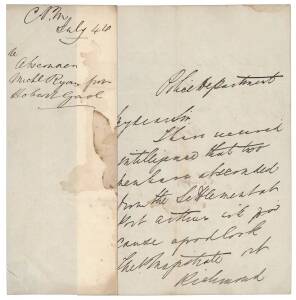 July 4th
Absconder
Michl Ryan from
Hobart Gaol
Police Department
My dear Sir
I have received
intelligence that two
men have absconded
from the Settlement at
Port Arthur
cause a good look
The Magistrate at
Richmond